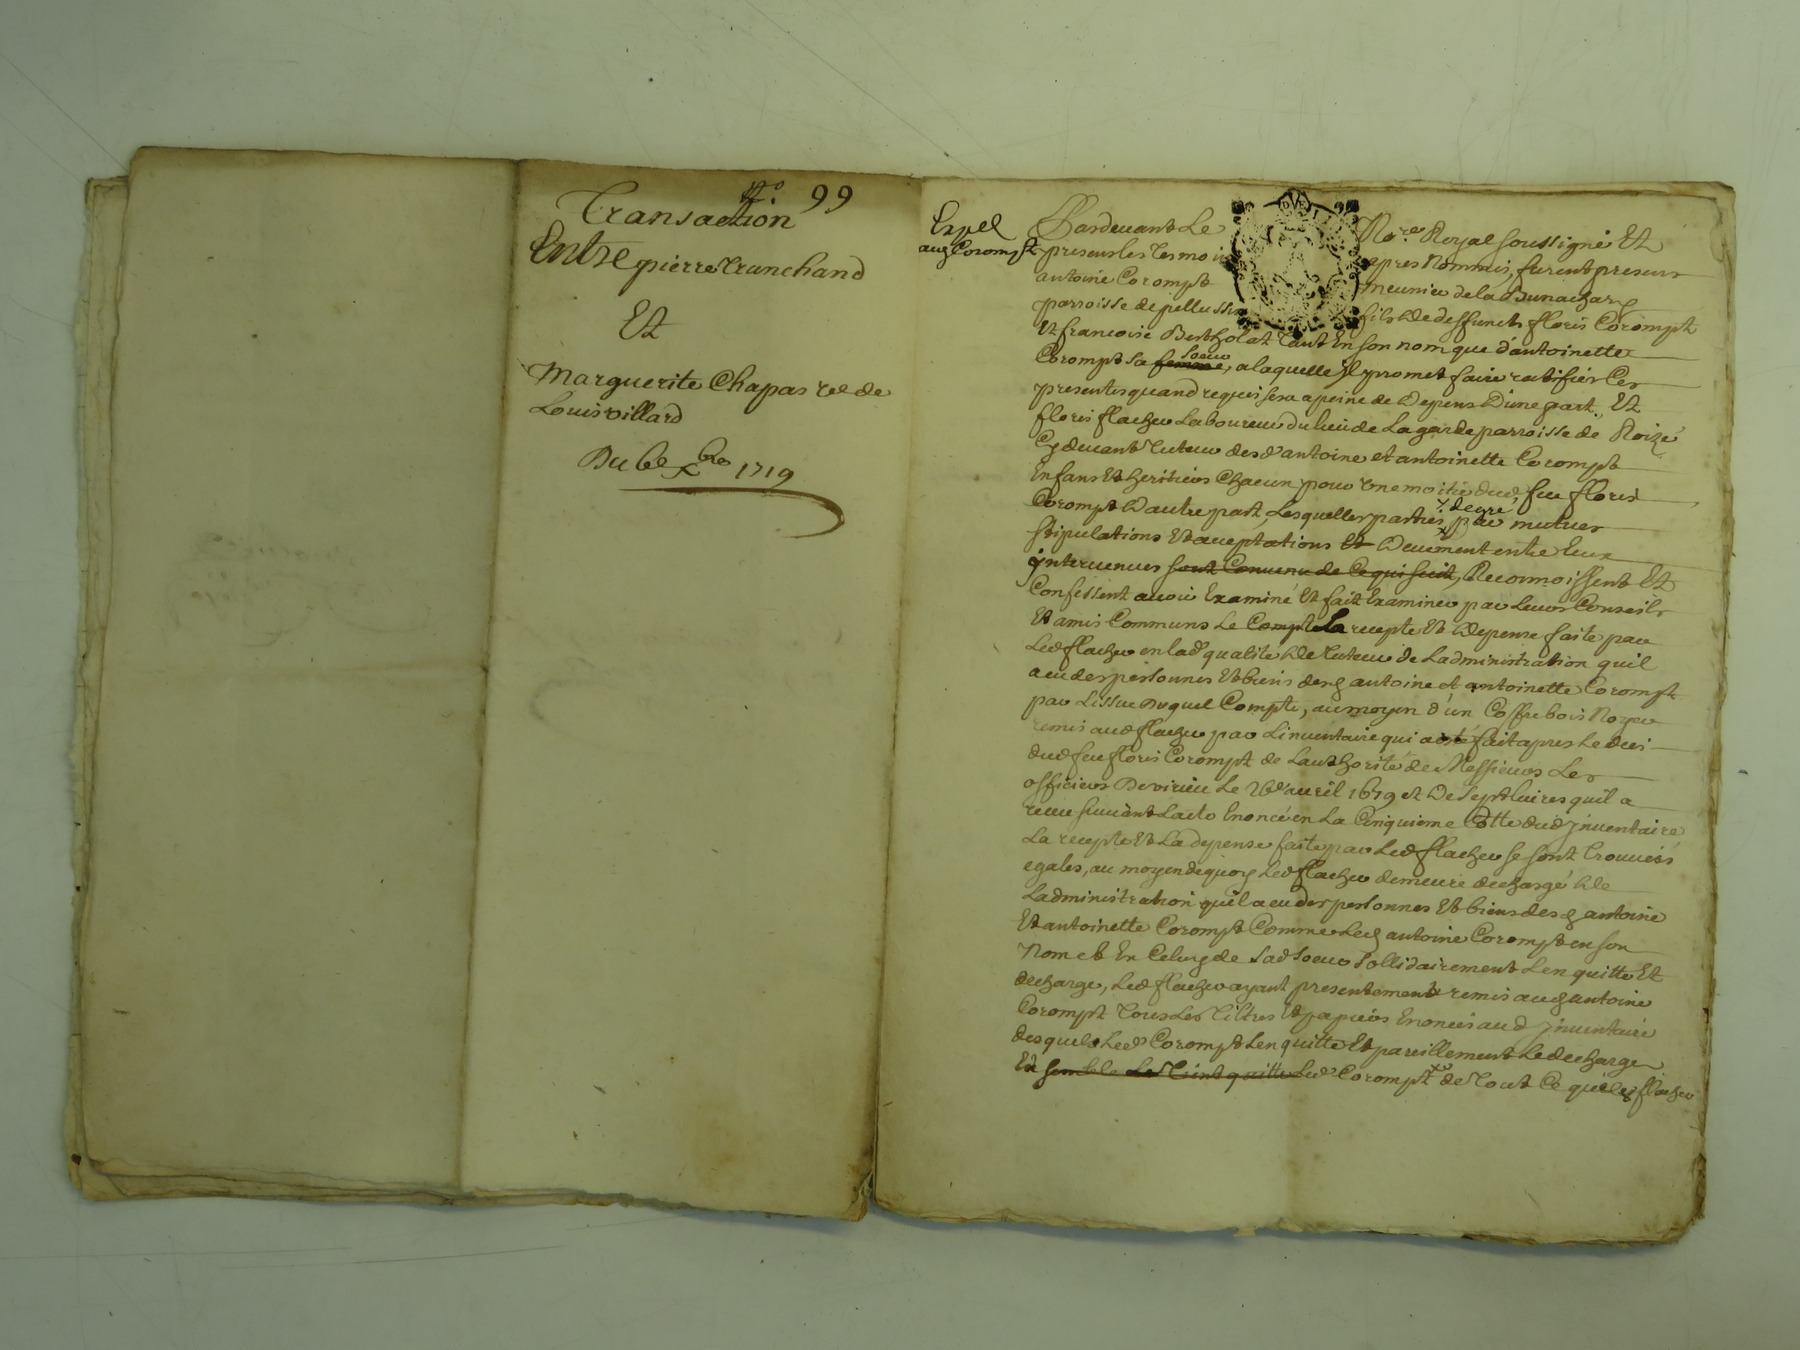 N° 99
Transaction
Entre pierre Tranchand
Et
Marguerite Chapas
Louis villard
Du 1719
Expel
aud Corompt
Pardevant Le No.re Royal soussigné Et
presents les Tesmoins apres Nommés, furent presens
antoine Corompt meunier de la
parroisse de pellussin fils de deffuncts floris Corompt
Et francoise Bertholat Tant En son nom que d'antoinette
Corompt sa femme soeur, a laquelle il promet faire ratifier Ces
presentes quand requis sera a peine de Depens D'une part. Et
floris flacher Laboureur du lieu de Lagarde parroisse de Roizé
Cydevant Tuteur desd antoine et antoinette Corompt
Enfans Et heritiers Chacun pour Une moitié dud, feu floris
Corompt D'autre part, Lesquelles parties, de gre par mutues
stipulations Et aceptations Et Deuement entre Eux
jntervenues sont Convenu de Ce qui suit, Reconnoissent Et
Confessent avoir Examiné Et fait Examiner par Leurs Conseils
Et amis Communs Le Compte La recepte Et Depense faite par
Led flacher en lad qualité De Tuteur de Ladministration qu'il
a eu des personnes Et biens desd antoine et antoinette Corompt
par Lissue Duquel Compte, au moyen d'un Coffre bois Noyer
remis aud flacher par Linventaire qui a esté fait apres Le deces
dud feu floris Corompt de Lauthorité de Messieurs Les
officiers De virieu Le avril 1679 et De sept livres qu'il a
receu suivant Lacte Enoncé en La Cinquieme Cotte dud jnventaire
La recepte Et La depense faite par Led flacher se sont Trouvées
egales, au moyen de quoy Led flacher demeure dechargé De
Ladministration qu'il a eu des personnes Et biens desd antoine
Et antoinette Corompt Comme Led antoine Corompt en son
Nom et En Celuy de sad soeur sollidairement Len quitte Et
decharge, Led flacher ayant presentement remis aud antoine
Corompt Tous Les Tiltres Et papiers Enoncés aud jnventaire
desquels Led Corompt Len quitte Et pareillement Le decharge
Et semble Le Tient quitte Led Corompt de Tout Ce que Led flacher